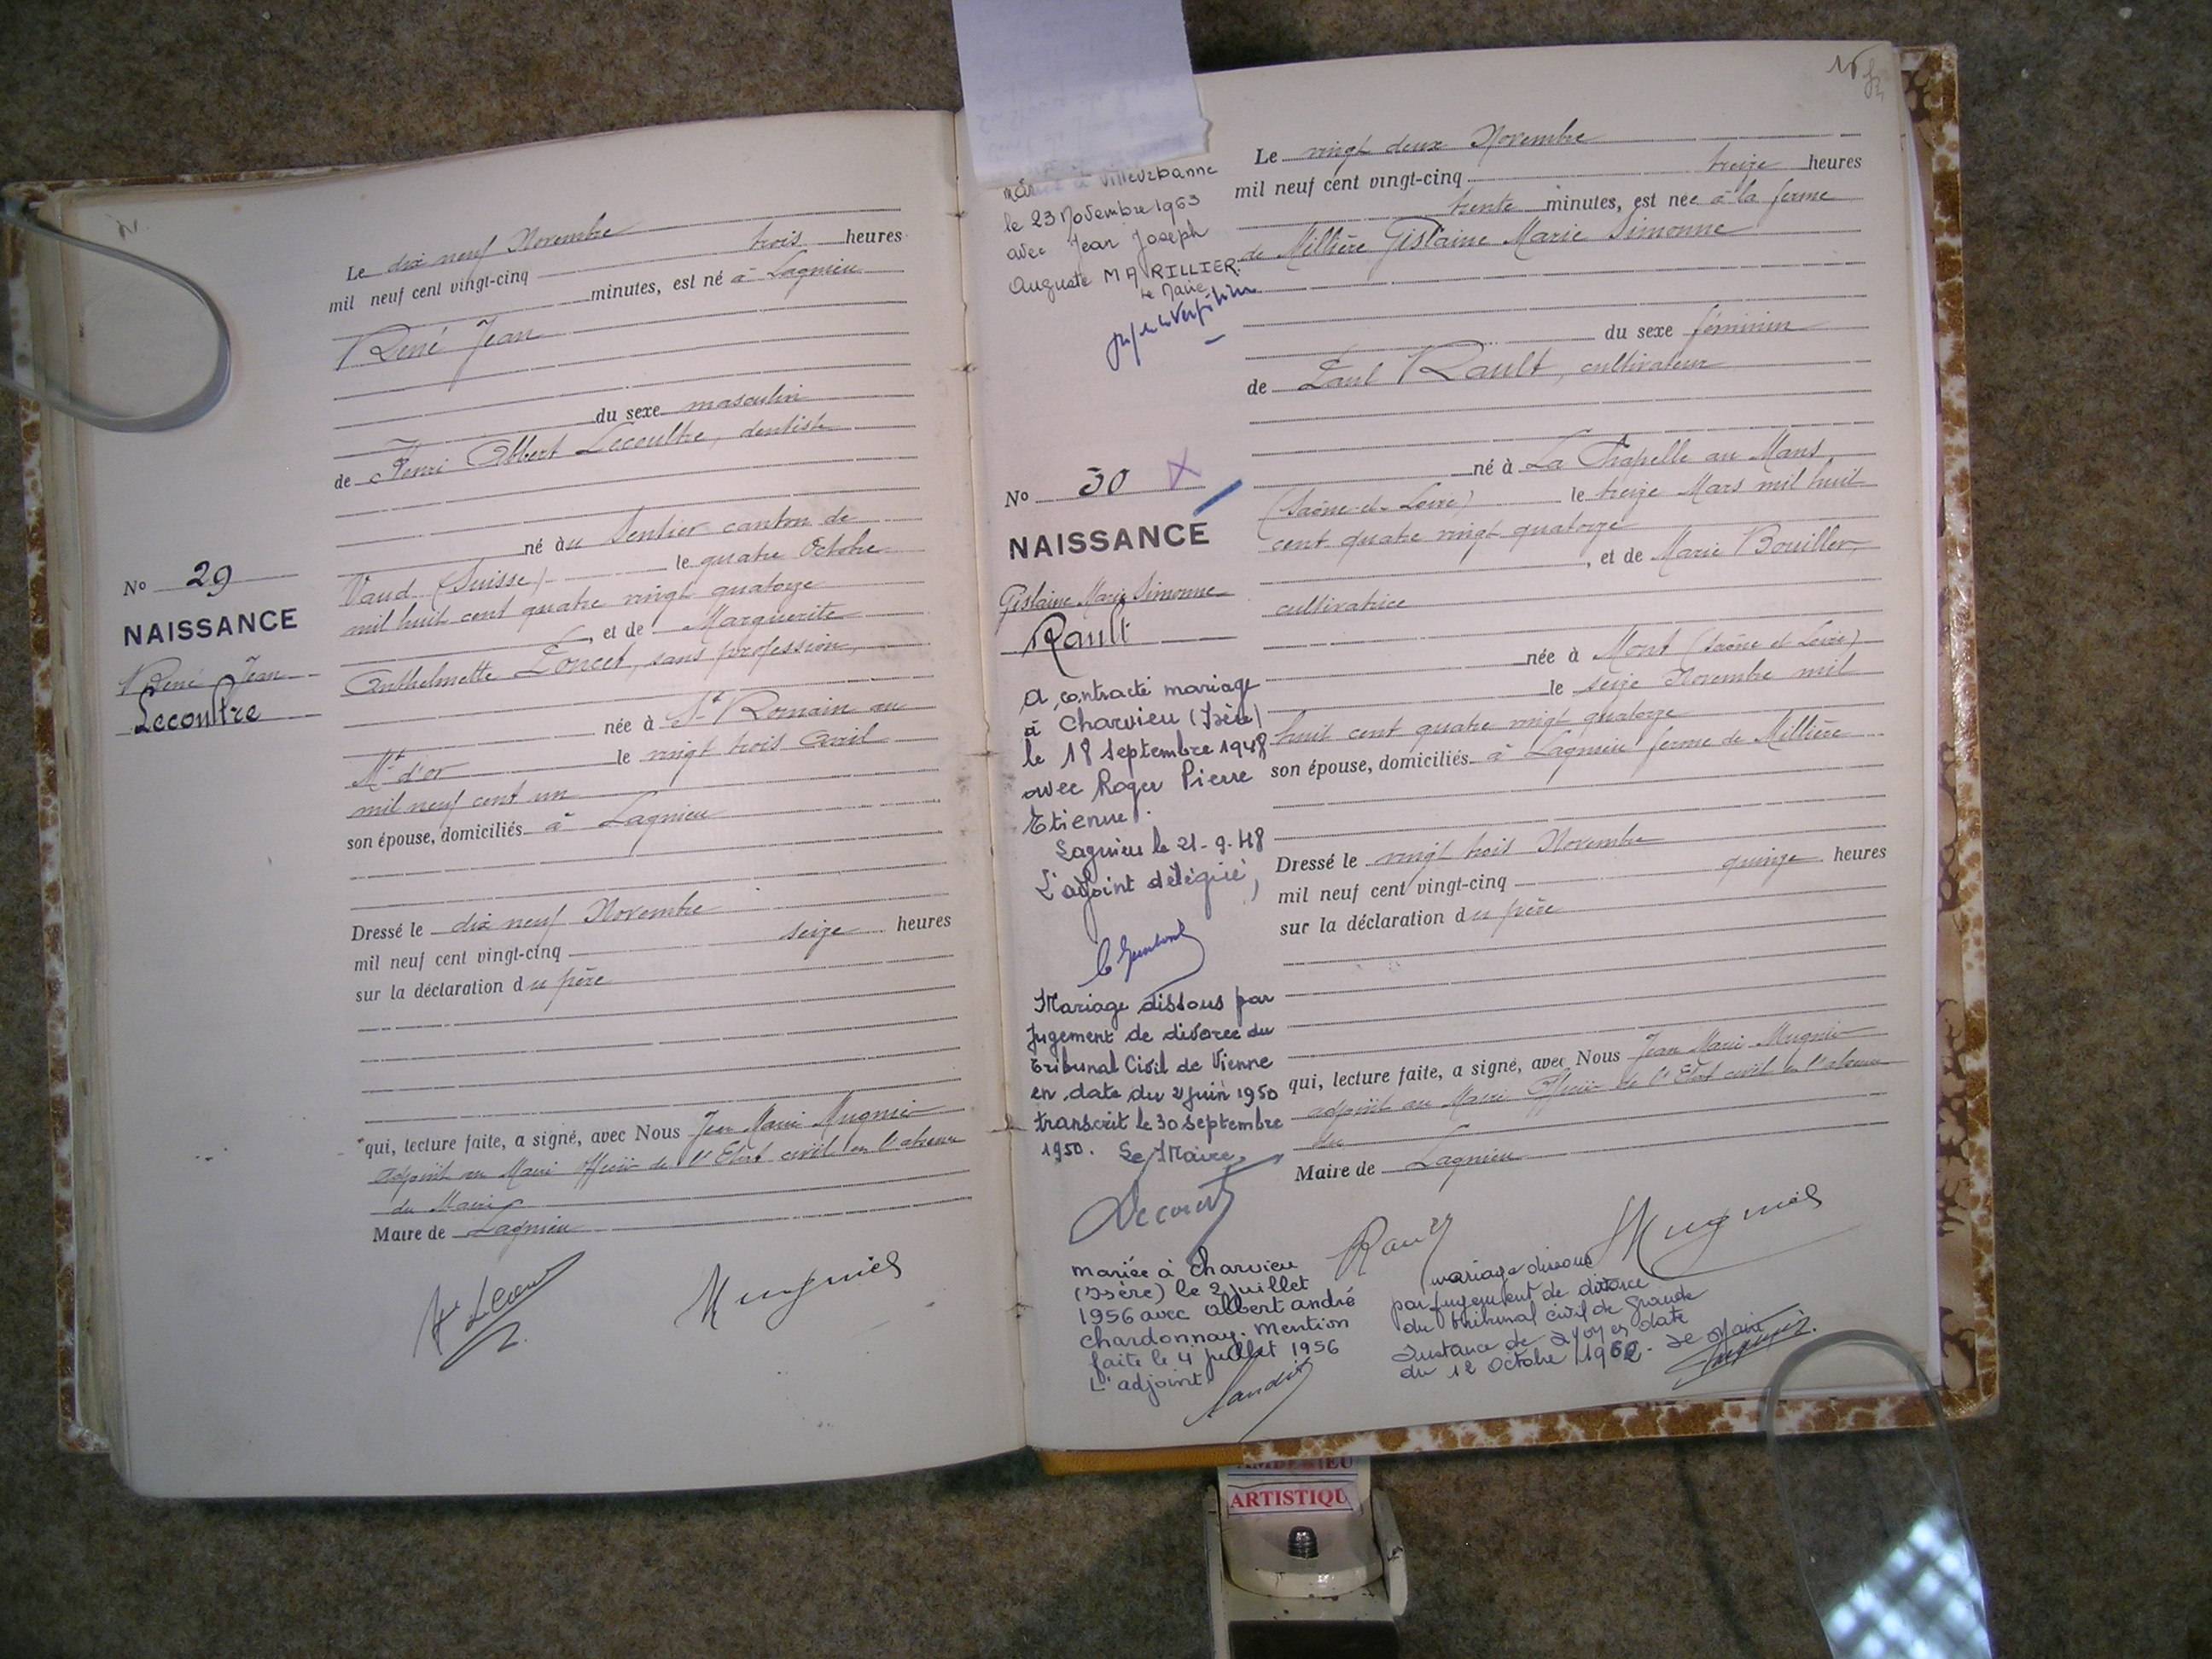 Le dix neuf Novembre
mil neuf cent vingt-cinq trois heures
minutes, est né à Lagnieu
René Jean
du sexe masculin
de Henri Albert Lecoultre, dentiste
né au Sentier canton de
Vaud (Suisse) le quatre Octobre
mil huit cent quatre vingt quatorze
, et de Marguerite
Anthelmette Poncet, sans profession,
née à St Romain au
Mt d'or le vingt trois Avril
mil neuf cent un
son épouse, domiciliés à Lagnieu
Dressé le dix neuf Novembre
mil neuf cent vingt-cinq seize heures
sur la déclaration du père
qui, lecture faite, a signé, avec Nous Jean Marie Mugnier
adjoint au Maire officier de l'Etat civil en l'absence
du Maire
Maire de Lagnieu
Mugnier
No 29
NAISSANCE
René Jean
Lecoultre
Le vingt deux Novembre
mil neuf cent vingt-cinq treize heures
trente minutes, est née à la ferme
de Millière Gislaine Marie Simonne
du sexe féminin
de Paul Rault, cultivateur
né à La Chapelle au Mans
(Saône-et-Loire) le treize Mars mil huit
cent quatre vingt quatorze
, et de Marie Bouiller,
cultivatrice
née à Mont (Saône et Loire)
le seize Novembre mil
huit cent quatre vingt quatorze
son épouse, domiciliés à Lagnieu ferme de Millière
Dressé le vingt trois Novembre
mil neuf cent vingt-cinq quinze heures
sur la déclaration du père
qui, lecture faite, a signé, avec Nous Jean Marie Mugnier
adjoint au Maire Officier de l'Etat civil en l'absence
du
Maire de Lagnieu
Rault Mugnier
à Villeurbanne
le 23 Novembre 1963
avec Jean Joseph
Auguste MARILLIER.
Le Maire,
No 30 X
NAISSANCE
Gislaine Marie Simonne
Rault
A contracté mariage
à Charvieu (Isère)
le 18 Septembre 1948
avec Roger Pierre
Etienne.
Lagnieu le 21-9-48
L'adjoint délégué,
Mariage dissous par
Jugement de divorce du
Tribunal Civil de Vienne
en date du 2 juin 1950
transcrit le 30 septembre
1950. Le Maire,
mariée à Charvieu
(Isère) le 2 juillet
1956 avec Albert André
Chardonnay. Mention
faite le 4 juillet 1956
L'adjoint
mariage dissous
par jugement de divorce
du tribunal civil de Grande
Instance de Lyon en date
du 12 Octobre 1962. Le Maire
ARTISTIQU